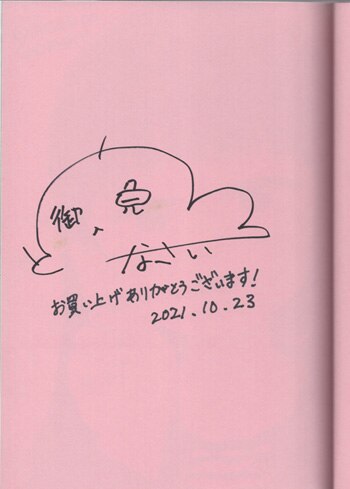 御免
なさい
お買い上げありがとうございます!
2021.10.23